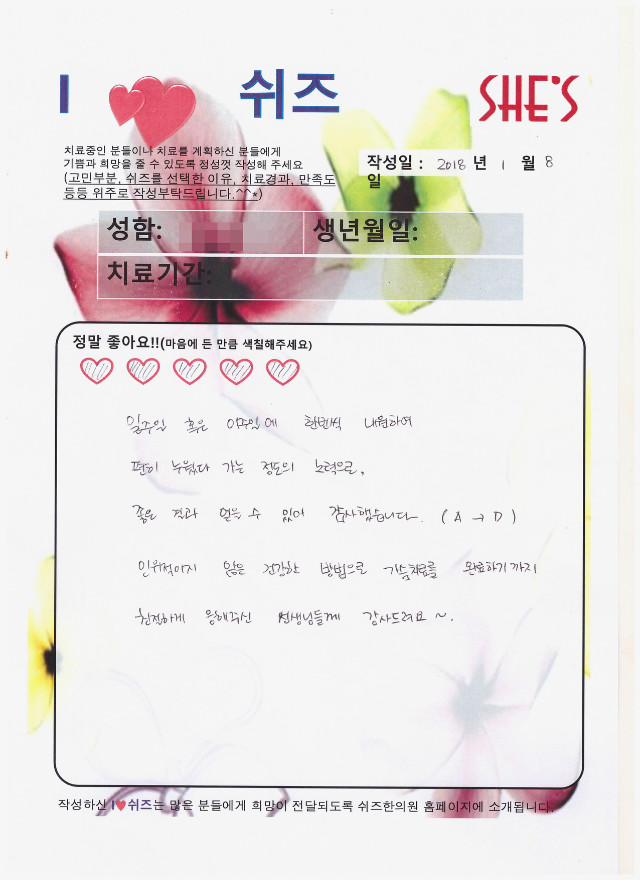 I 쉬즈 SHE'S
치료중인 분들이나 치료를 계획하신 분들에게
기쁨과 희망을 줄 수 있도록 정성껏 작성해 주세요
(고민부분, 쉬즈를 선택한 이유, 치료경과, 만족도
등등 위주로 작성부탁드립니다.^^*)
작성일 : 2018 년 1 월 8
일
성함: 생년월일:
치료기간:
정말 좋아요!!(마음에 든 만큼 색칠해주세요)
일주일 혹은 이주일에 한번씩 내원하여
편히 누웠다 가는 정도의 노력으로,
좋은 결과 얻을 수 있어 감사했습니다. (A → D)
인위적이지 않은 건강한 방법으로 가슴치료를 완료하기까지
친절하게 응해주신 선생님들께 감사드려요 ~.
작성하신 I♥쉬즈는 많은 분들에게 희망이 전달되도록 쉬즈한의원 홈페이지에 소개됩니다.